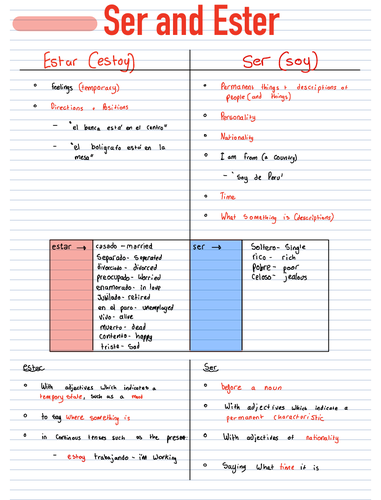 Ser and Ester
Estar (estoy)
Feelings (temporary)
Directions + Positions
- "el banca está en el centro"
- "el boligrafo está en la
mesa"
Ser (soy)
Permanent things + descriptions of
people (and things)
Personality
Nationality
I am from (a country)
- 'Soy de Peru'
Time
What Something is (descriptions)
estar →
casado - married
Separado - Seperated
divorciado - divorced
preocupado - Worried
enamorado - in love
Jubilado - retired
en el paro - unemployed
vivo - alive
muerto - dead
contento - happy
triste - Sad
ser →
Soltero - Single
rico - rich
Pobre - poor
Celoso - jealous
estar
With adjectives which indicates a
tempory state, such as a mood
to say where something is
in continous tenses such as the present
- estoy trabajando - i'm working
Ser
before a noun
With adjectives which indicate a
permanent characteristic
With adjectives of nationality
Saying what time it is